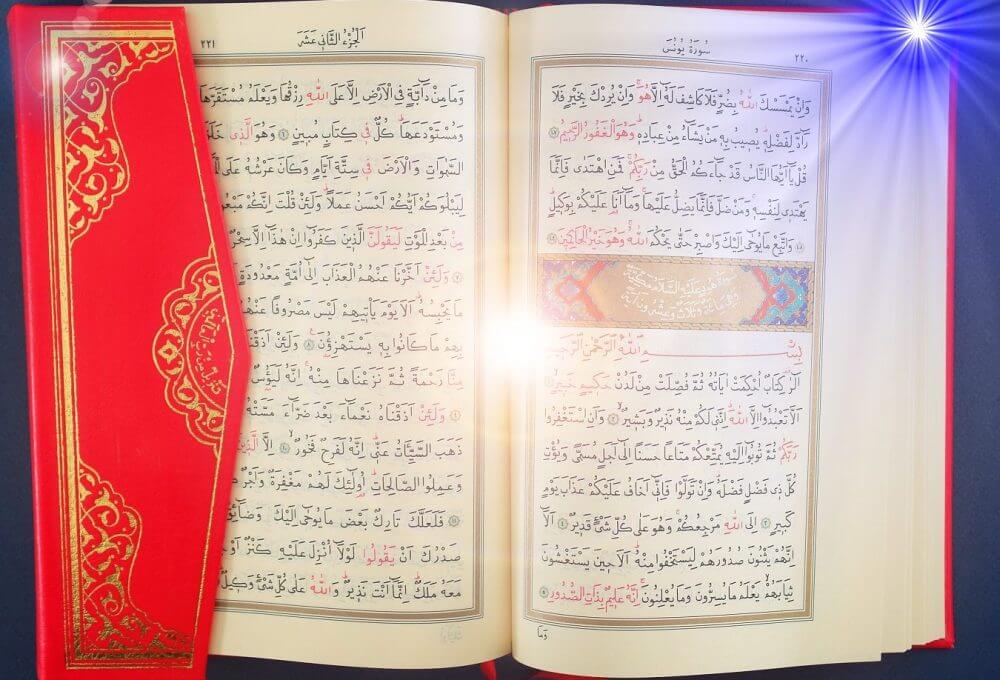 سورة يونس
٢٢٠
وَاِنْ يَمْسَسْكَ اللّٰهُ بِضُرٍّ فَلَا كَاشِفَ لَهُٓ اِلَّا هُوَۚ وَاِنْ يُرِدْكَ بِخَيْرٍ فَلَا
رَٓادَّ لِفَضْلِه۪ۜ يُص۪يبُ بِه۪ مَنْ يَشَٓاءُ مِنْ عِبَادِه۪ۜ وَهُوَ الْغَفُورُ الرَّح۪يمُ ١٠٧
قُلْ يَٓا اَيُّهَا النَّاسُ قَدْ جَٓاءَكُمُ الْحَقُّ مِنْ رَبِّكُمْۚ فَمَنِ اهْتَدٰى فَاِنَّمَا
يَهْتَد۪ي لِنَفْسِه۪ۚ وَمَنْ ضَلَّ فَاِنَّمَا يَضِلُّ عَلَيْهَاۚ وَمَٓا اَنَا۬ عَلَيْكُمْ بِوَك۪يلٍۜ
١٠٨ وَاتَّبِعْ مَا يُوحٰٓى اِلَيْكَ وَاصْبِرْ حَتّٰى يَحْكُمَ اللّٰهُۚ وَهُوَ خَيْرُ الْحَاكِم۪ينَ ١٠٩
سورة هود عليه السلام مكية
وهى مائة وثلاث وعشرون آية
بِسْمِ اللّٰهِ الرَّحْمٰنِ الرَّح۪يمِ
الٓرٰ۠ كِتَابٌ اُحْكِمَتْ اٰيَاتُهُ ثُمَّ فُصِّلَتْ مِنْ لَدُنْ حَك۪يمٍ خَب۪يرٍۙ ١
اَلَّا تَعْبُدُٓوا اِلَّا اللّٰهَۜ اِنَّن۪ي لَكُمْ مِنْهُ نَذ۪يرٌ وَبَش۪يرٌۙ ٢ وَاَنِ اسْتَغْفِرُوا
رَبَّكُمْ ثُمَّ تُوبُٓوا اِلَيْهِ يُمَتِّعْكُمْ مَتَاعًا حَسَنًا اِلٰٓى اَجَلٍ مُسَمًّى وَيُؤْتِ
كُلَّ ذ۪ي فَضْلٍ فَضْلَهُۜ وَاِنْ تَوَلَّوْا فَاِنّ۪ٓي اَخَافُ عَلَيْكُمْ عَذَابَ يَوْمٍ
كَب۪يرٍ ٣ اِلَى اللّٰهِ مَرْجِعُكُمْۚ وَهُوَ عَلٰى كُلِّ شَيْءٍ قَد۪يرٌ ٤ اَلَٓا
اِنَّهُمْ يَثْنُونَ صُدُورَهُمْ لِيَسْتَخْفُوا مِنْهُۜ اَلَا ح۪ينَ يَسْتَغْشُونَ
ثِيَابَهُمْۙ يَعْلَمُ مَا يُسِرُّونَ وَمَا يُعْلِنُونَۚ اِنَّهُ عَل۪يمٌ بِذَاتِ الصُّدُورِ ٥
وَمَا
اَلْجُزْءُ الثَّانِي عَشَرَ
٢٢١
وَمَا مِنْ دَٓابَّةٍ فِي الْاَرْضِ اِلَّا عَلَى اللّٰهِ رِزْقُهَا وَيَعْلَمُ مُسْتَقَرَّهَا
وَمُسْتَوْدَعَهَاۜ كُلٌّ ف۪ي كِتَابٍ مُب۪ينٍ ٦ وَهُوَ الَّذ۪ي خَلَقَ
السَّمٰوَاتِ وَالْاَرْضَ ف۪ي سِتَّةِ اَيَّامٍ وَكَانَ عَرْشُهُ عَلَى
لِيَبْلُوَكُمْ اَيُّكُمْ اَحْسَنُ عَمَلًاۜ وَلَئِنْ قُلْتَ اِنَّكُمْ
مِنْ بَعْدِ الْمَوْتِ لَيَقُولَنَّ الَّذ۪ينَ كَفَرُٓوا اِنْ هٰذَٓا اِلَّا سِحْرٌ
٧ وَلَئِنْ اَخَّرْنَا عَنْهُمُ الْعَذَابَ اِلٰٓى اُمَّةٍ مَعْدُودَةٍ
مَا يَحْبِسُهُۜ اَلَا يَوْمَ يَأْت۪يهِمْ لَيْسَ مَصْرُوفًا عَنْهُمْ
بِهِمْ مَا كَانُوا بِه۪ يَسْتَهْزِؤُ۫نَ ٨ وَلَئِنْ اَذَقْنَا
مِنَّا رَحْمَةً ثُمَّ نَزَعْنَاهَا مِنْهُۚ اِنَّهُ لَيَؤُ۫سٌ
٩ وَلَئِنْ اَذَقْنَاهُ نَعْمَٓاءَ بَعْدَ ضَرَّٓاءَ مَسَّتْهُ
ذَهَبَ السَّيِّـَٔاتُ عَنّ۪يۜ اِنَّهُ لَفَرِحٌ فَخُورٌۙ ١٠ اِلَّا الَّذ۪ينَ
وَعَمِلُوا الصَّالِحَاتِۜ اُو۬لٰٓئِكَ لَهُمْ مَغْفِرَةٌ وَاَجْرٌ
١١ فَلَعَلَّكَ تَارِكٌ بَعْضَ مَا يُوحٰٓى اِلَيْكَ وَضَٓائِقٌ
صَدْرُكَ اَنْ يَقُولُوا لَوْلَٓا اُنْزِلَ عَلَيْهِ كَنْزٌ اَوْ
مَعَهُ مَلَكٌۜ اِنَّمَٓا اَنْتَ نَذ۪يرٌۜ وَاللّٰهُ عَلٰى كُلِّ شَيْءٍ وَك۪يلٌ